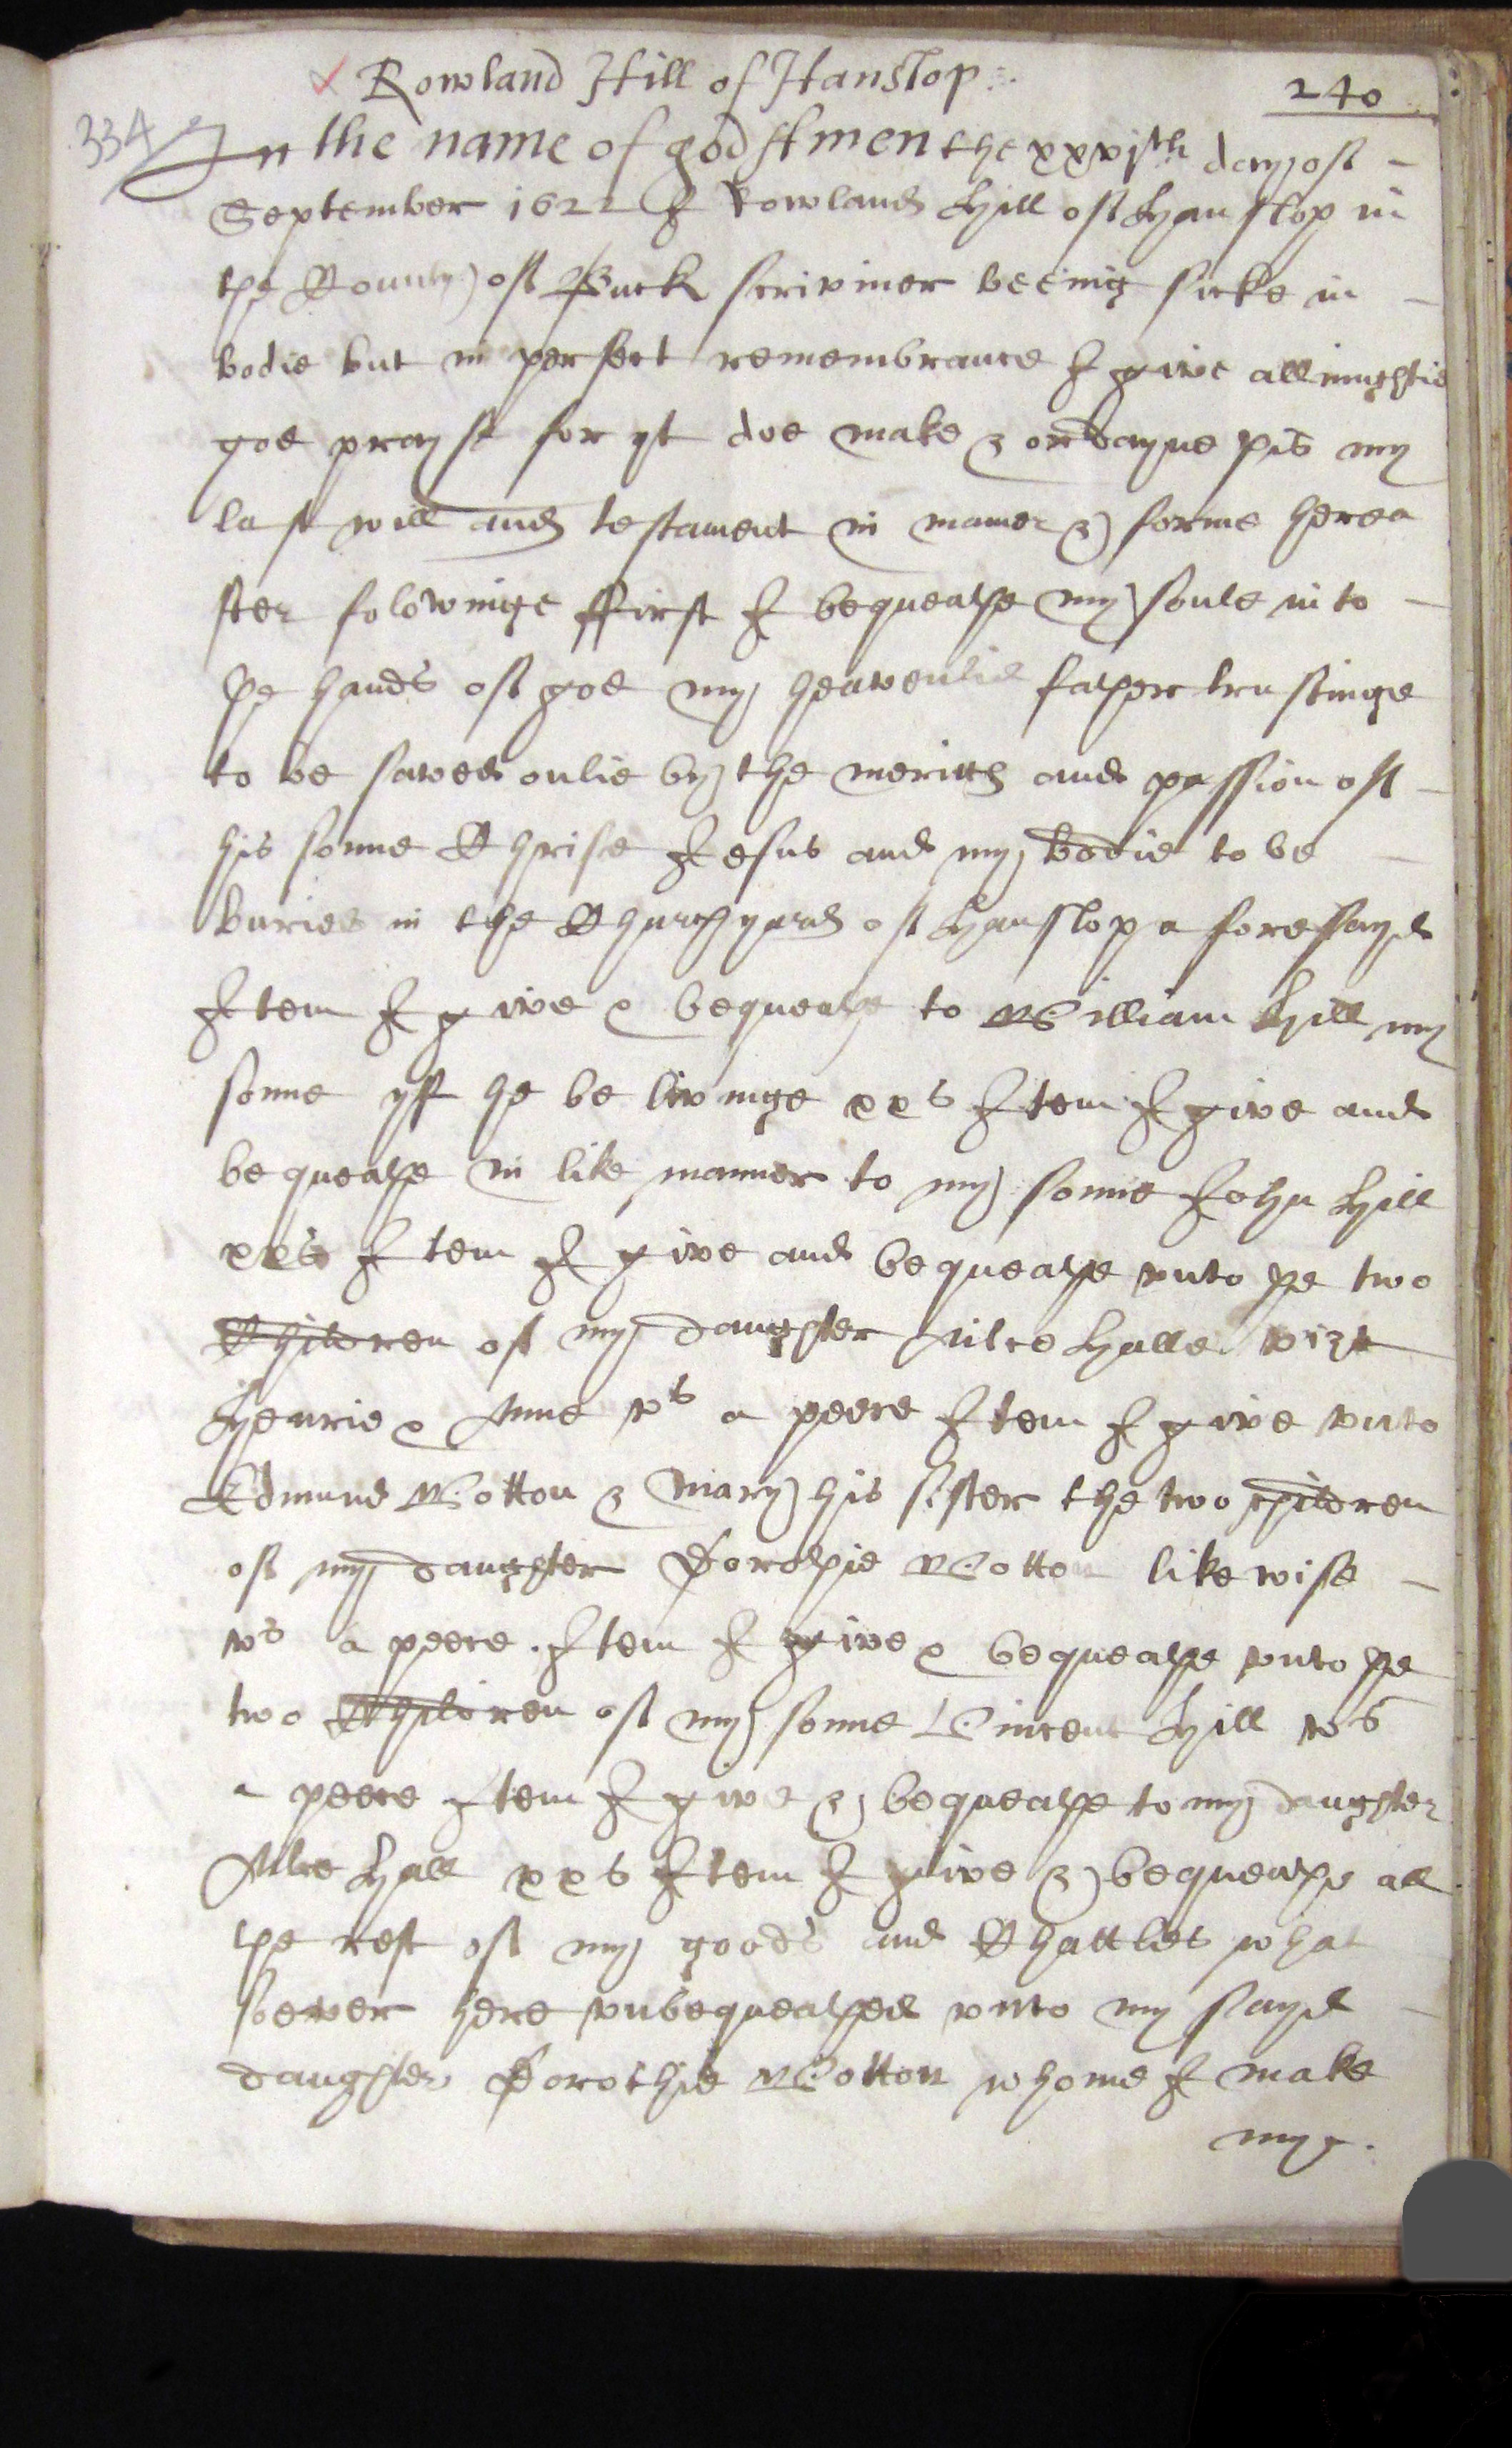 Rowland Hill of Hanslop
240
334
In the name of god Amen the xxvjth day of
September 1622 I Rowland Hill of Hanslop in
the County of Buck scriviner beeing sicke in
bodie but in perfect remembrance I give allmightie
god prayse for yt doe make & ordayne this my
last will and testament in maner & forme herea
fter folowinge ffirst I bequeathe my soule into
the hands of god my heavenlie father trustinge
to be saved onlie by the meritts and passion of
his sonne Christe Jesus and my bodie to be
buried in the Churchyard of Hanslop aforesayd
Item I give & bequeathe to William Hill my
sonne yf he be livinge xxs Item I give and
bequeathe in like manner to my sonne John Hill
xxs Item I give and bequeathe vnto the two
Children of my daughter Alce Halle vizt
Henrie & Anne vs a peece Item I give vnto
Edmund Wotton & Mary his sister the two children
of my daughter Dorothie Wotton likewise
vs a peece. Item I give & bequeathe vnto the
two Children of my sonne Vincent Hill vs
a peece Item I give & bequeathe to my daughter
Alce Hall xxs Item I give & bequeathe all
the rest of my goods and Chattles what
soever here vnbequeathed vnto my sayd
daughter Dorothie Wotton whome I make
my